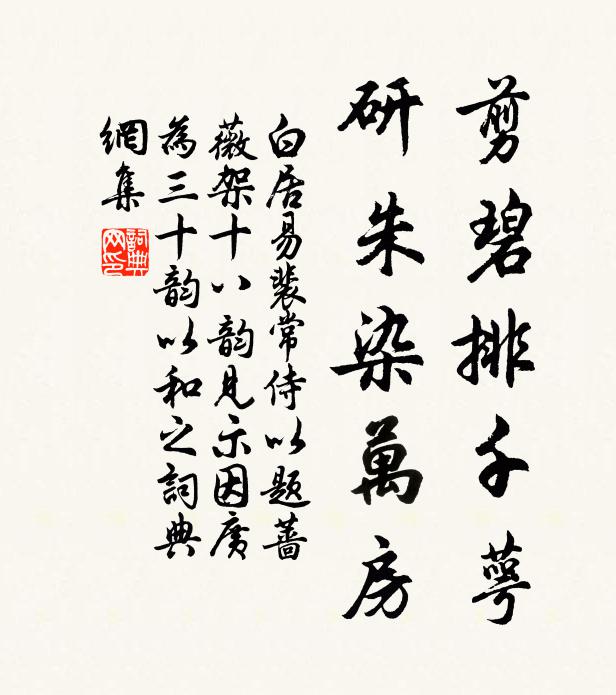 剪碧排千萼
研朱染萬房
白居易裴常侍以题薔
薇架十八韵見示因廣
為三十韵以和之詞典
網集
詞典
网印